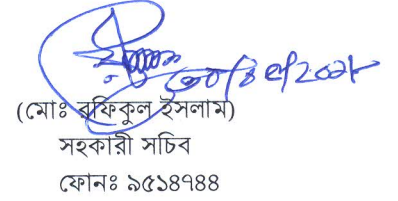 (মোঃ রফিকুল ইসলাম)
সহকারী সচিব
ফোনঃ ৯৫১৪৭৪৪